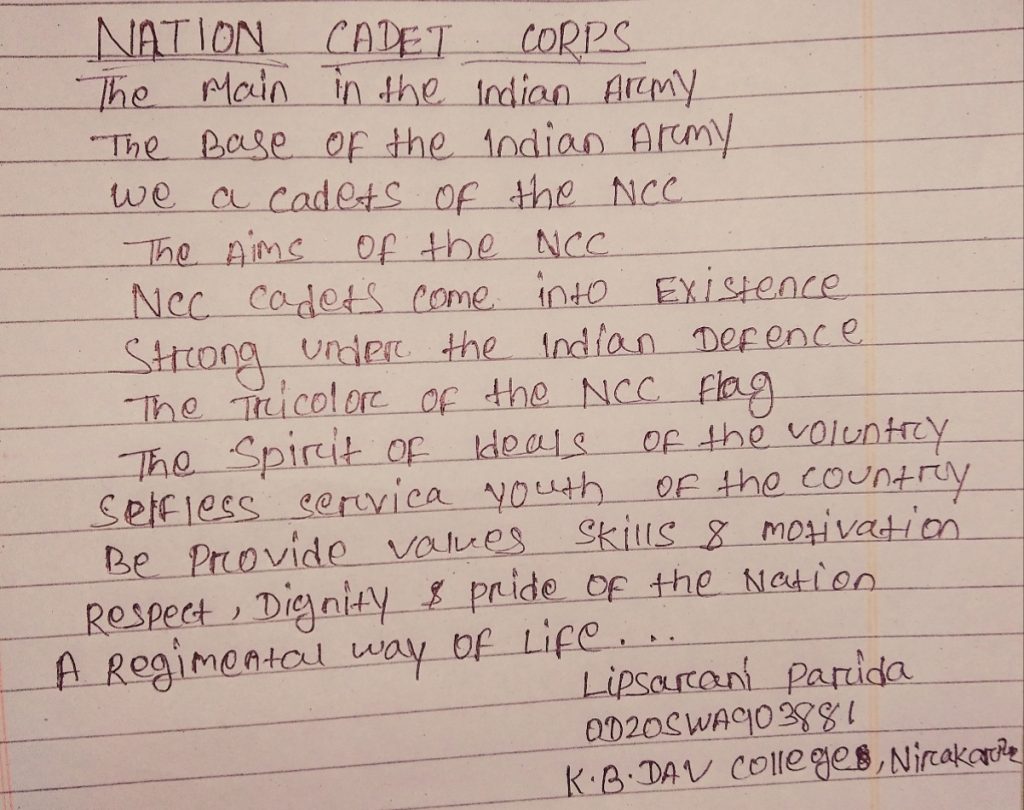 NATION CADET CORPS
The Main in the Indian Army
The Base of the Indian Army
we a cadets of the NCC
The Aims of the NCC
NCC cadets come into Existence
Strong under the Indian Defence
The Tricolor of the NCC Flag
The Spirit of Ideals of the voluntry
Selfless servica youth of the country
Be Provide values skills & motivation
Respect, Dignity & pride of the Nation
A Regimental way of Life....
Lipsarani Parida
OD20SWA903881
K.B.DAV Colleges,